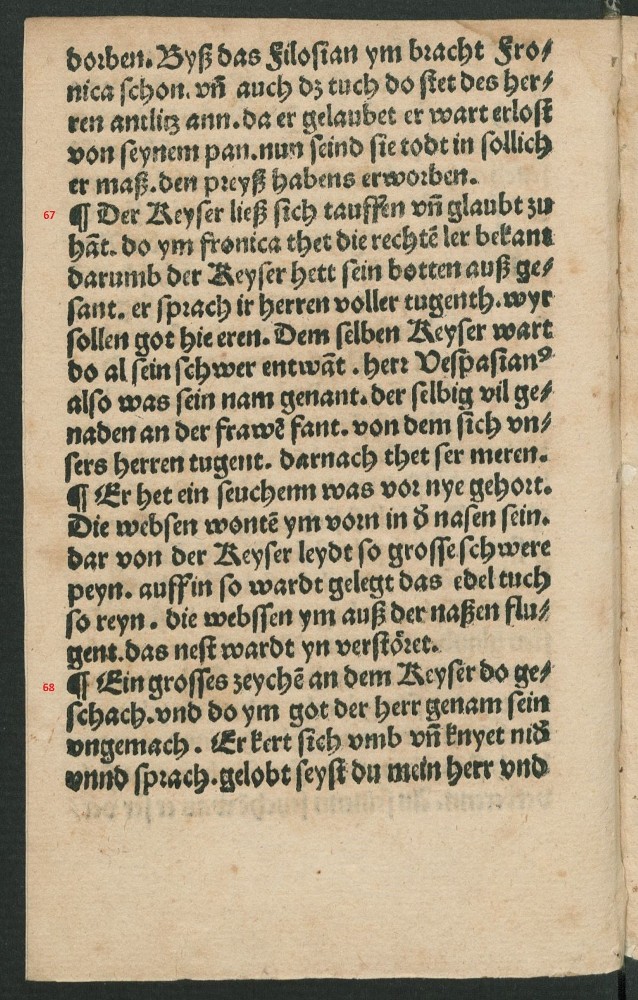 dorben. Byß das Filosian ym bracht Fro⸗
nica schon. vñ auch dz tuch do stet des her⸗
ren antlitz ann. da er gelaubet er wart erlost
von seynem pan. nun seind sie todt in sollich
er maß. den preyß habens erworben.
67 ¶ Der Keyser ließ sich tauffen vñ glaubt zu
hãt. do ym fronica thet die rechtẽ ler bekant
darumb der Keyser hett sein botten auß ge⸗
sant. er sprach ir herren voller tugenth. wyr
sollen got hie eren. Dem selben Keyser wart
do al sein schwer entwãt. herr Vespasianꝰ
also was sein nam genant. der selbig vil ge⸗
naden an der frawẽ fant. von dem sich vn⸗
sers herren tugent. darnach thet ser meren.
¶ Er het ein seuchenn was vor nye gehort.
Die websen wontẽ ym vorn in d̕ nasen sein.
dar von der Keyser leydt so grosse schwere
peyn. auff in so wardt gelegt das edel tuch
so reyn. die webssen ym auß der naßen flu⸗
gent. das nest wardt yn verstöret.
68 ¶ Ein grosses zeychẽ an dem Keyser do ge⸗
schach. vnd do ym got der herr genam sein
vngemach. Er kert sich vmb vñ knyet nid̕
vnnd sprach. gelobt seyst du mein herr vnd